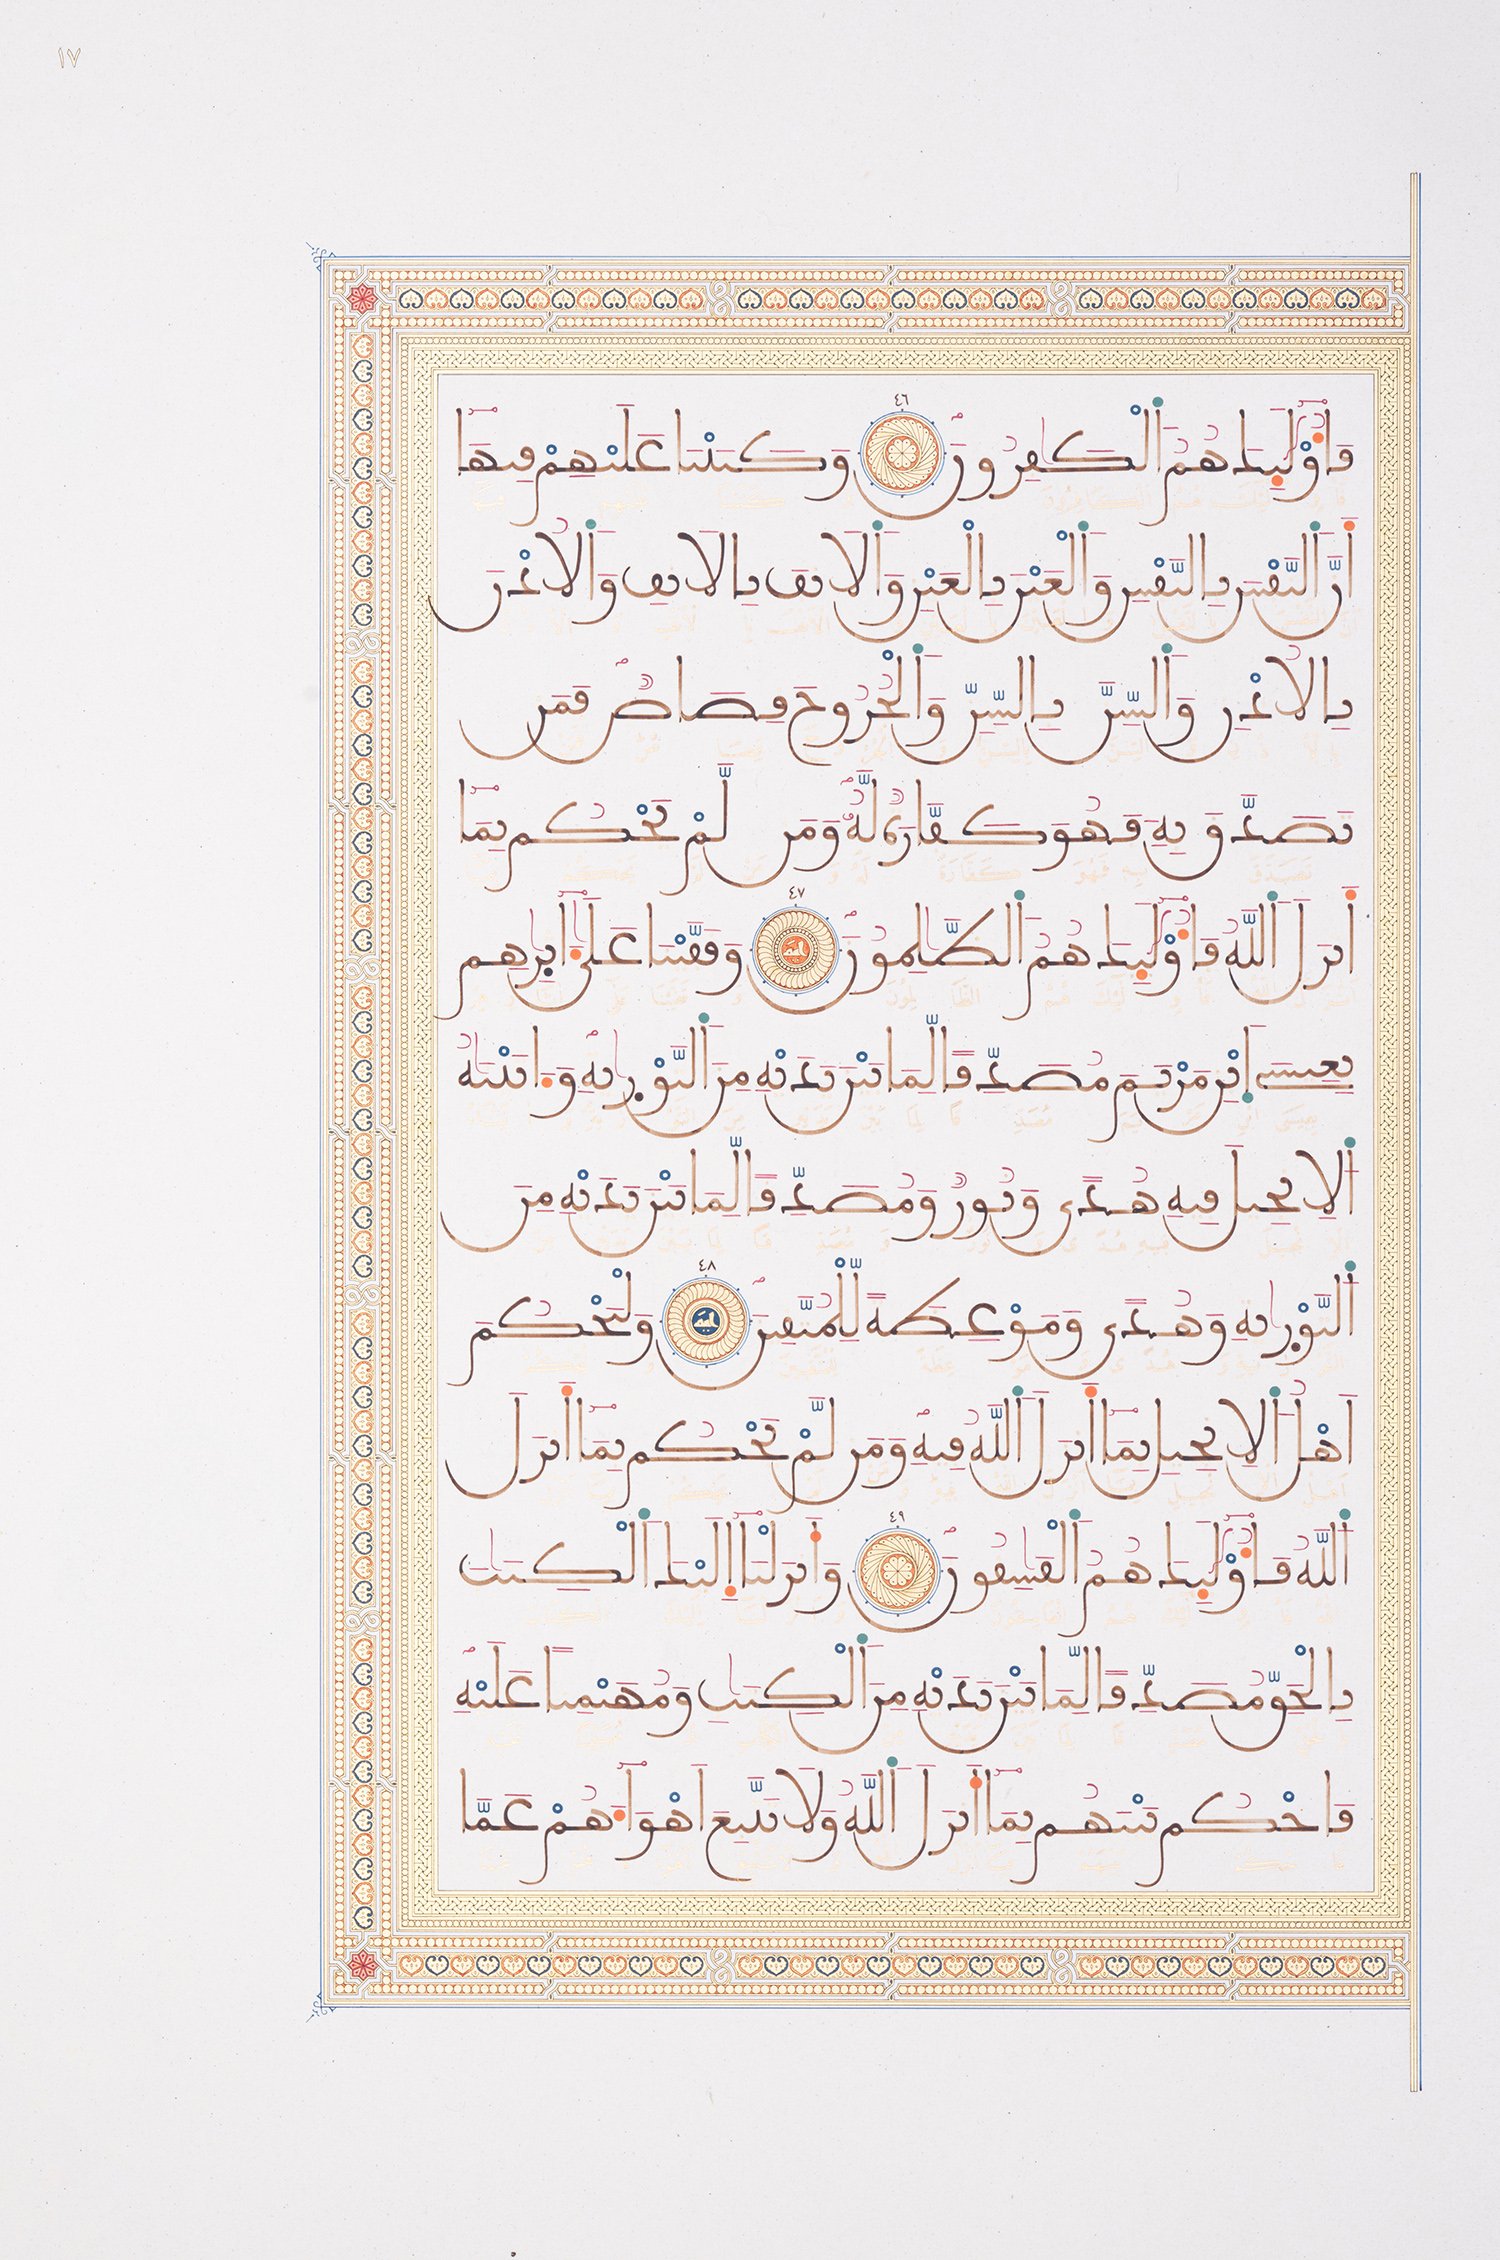 ١٧
فَأُوْلَٰٓئِكَ هُمُ اُ۬لْكَٰفِرُونَۖ ٤٦ وَكَتَبْنَا عَلَيْهِمْ فِيهَآ
أَنَّ اَ۬لنَّفْسَ بِالنَّفْسِ وَالْعَيْنَ بِالْعَيْنِ وَالَانفَ بِالَانفِ وَالُاذْنَ
بِالُاذْنِ وَالسِّنَّ بِالسِّنِّ وَالْجُرُوحَ قِصَاصٞۖ فَمَن
تَصَدَّقَ بِهِۦ فَهُوَ كَفَّارَةٞ لَّهُۥۖ وَمَن لَّمْ يَحْكُم بِمَآ
أَنزَلَ اَ۬للَّهُ فَأُوْلَٰٓئِكَ هُمُ اُ۬لظَّٰلِمُونَۖ ٤٧ وَقَفَّيْنَا عَلَىٰٓ ءَاثٰ۪رِهِم
بِعِيسَى اَ۪بْنِ مَرْيَمَ مُصَدِّقاٗ لِّمَا بَيْنَ يَدَيْهِ مِنَ اَ۬لتَّوْر۪ىٰةِۖ وَءَاتَيْنَٰهُ
اُ۬لِانجِيلَ فِيهِ هُدىٗ وَنُورٞ وَمُصَدِّقاٗ لِّمَا بَيْنَ يَدَيْهِ مِنَ
اَ۬لتَّوْر۪ىٰةِ وَهُدىٗ وَمَوْعِظَةٗ لِّلْمُتَّقِينَۖ ٤٨ وَلْيَحْكُمَ
اَهْلُ اُ۬لِانجِيلِ بِمَآ أَنزَلَ اَ۬للَّهُ فِيهِۖ وَمَن لَّمْ يَحْكُم بِمَآ أَنزَلَ
اَ۬للَّهُ فَأُوْلَٰٓئِكَ هُمُ اُ۬لْفَٰسِقُونَۖ ٤٩ وَأَنزَلْنَآ إِلَيْكَ اَ۬لْكِتَٰبَ
بِالْحَقِّ مُصَدِّقاٗ لِّمَا بَيْنَ يَدَيْهِ مِنَ اَ۬لْكِتَٰبِ وَمُهَيْمِناً عَلَيْهِۖ
فَاحْكُم بَيْنَهُم بِمَآ أَنزَلَ اَ۬للَّهُ وَلَا تَتَّبِعَ اَهْوَآءَهُمْ عَمَّا